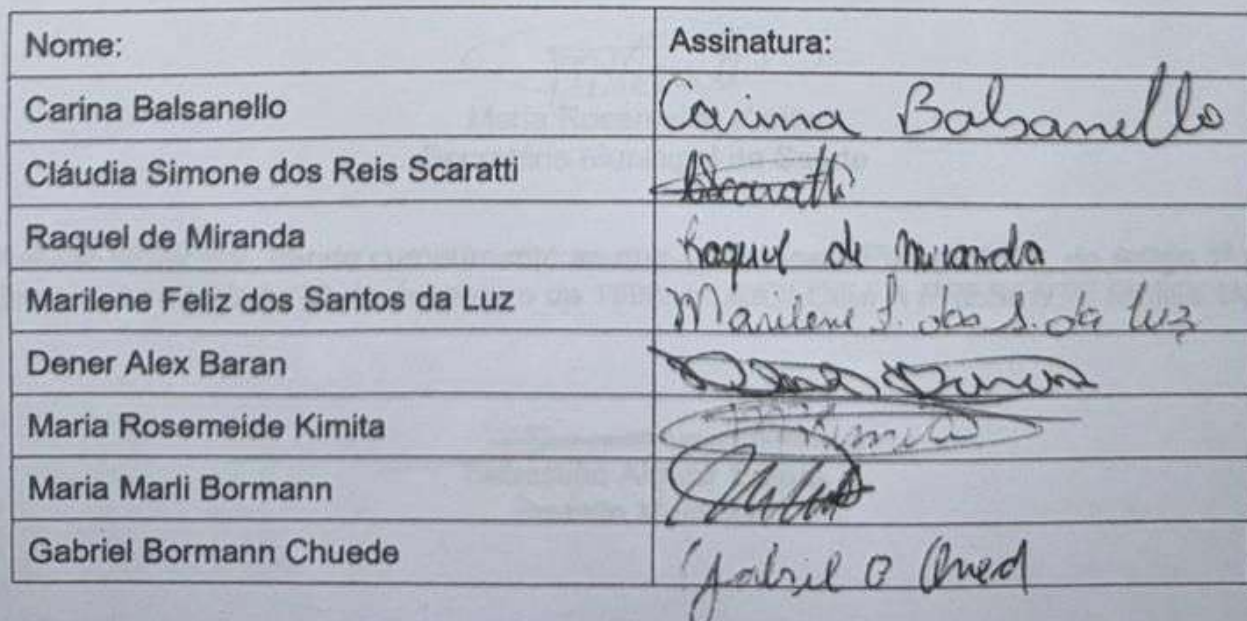 Nome: Assinatura:
Carina Balsanello Carina Balsanello
Cláudia Simone dos Reis Scaratti Scaratti
Raquel de Miranda Raquel de Miranda
Marilene Feliz dos Santos da Luz Marilene F. dos S. da Luz
Dener Alex Baran Dener Baran
Maria Rosemeide Kimita MKimita
Maria Marli Bormann
Gabriel Bormann Chuede Gabriel B Chued